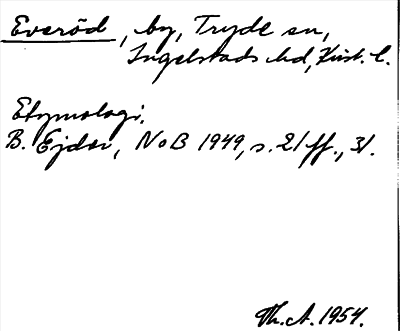 Everöd, by, Tryde sn,
Ingelstads hd, Krist. l.
Etymologi.
B. Ejder, NoB 1949, s. 21 ff., 31.
Th. A. 1954.